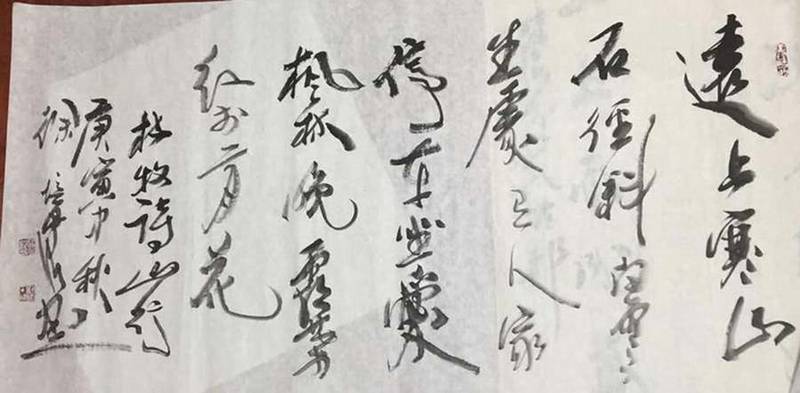 遠上寒山
石徑斜白雲
生處有人家
停車坐愛
楓林晚霜葉
紅於二月花
杜牧詩山行
庚寅中秋
徐